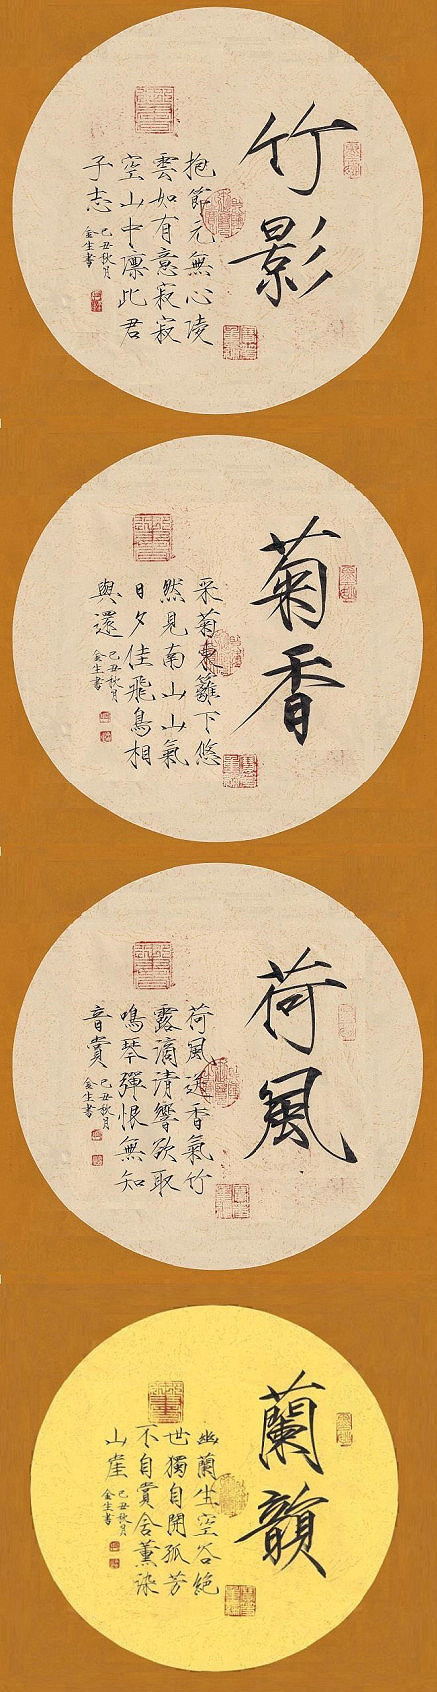 竹影
抱節元無心陵
雲如有意寂寂
空山中凛此君
子志
己丑秋月
金生書
菊香
采菊東籬下悠
然見南山山氣
日夕佳飛鳥相
與還
己丑秋月
金生書
荷風
荷風送香氣竹
露滴清響欲取
鳴琴彈恨無知
音賞
己丑秋月
金生書
蘭韻
幽蘭生空谷絕
世獨自開孤芳
不自賞含薰染
山崖
己丑秋月
金生書